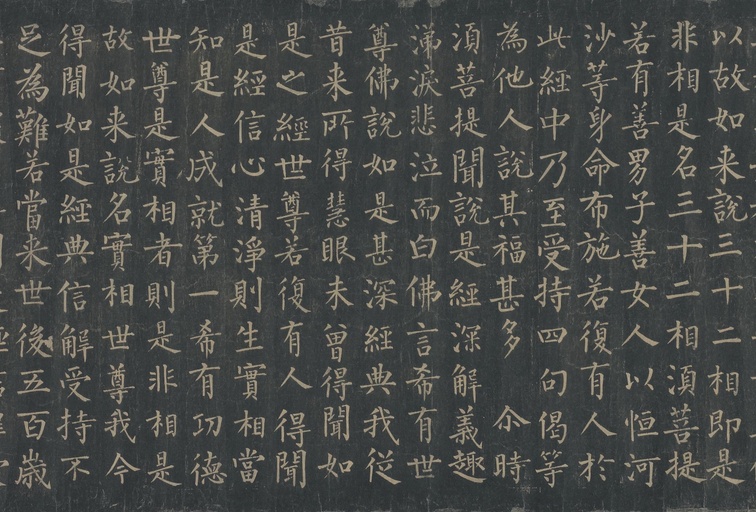 以故如来說三十二相即是
非相是名三十二相湏菩提
若有善男子善女人以恒河
沙等身命布施若復有人於
此經中乃至受持四句偈等
為他人說其福甚多 尒時
湏菩提聞說是經深解義趣
涕淚悲泣而白佛言希有世
尊佛說如是甚深經典我従
昔来所得慧眼未曾得聞如
是之經世尊若復有人得聞
是經信心清淨則生實相當
知是人成就第一希有功德
世尊是實相者則是非相是
故如来說名實相世尊我今
得聞如是經典信解受持不
足為難若當来世後五百歲